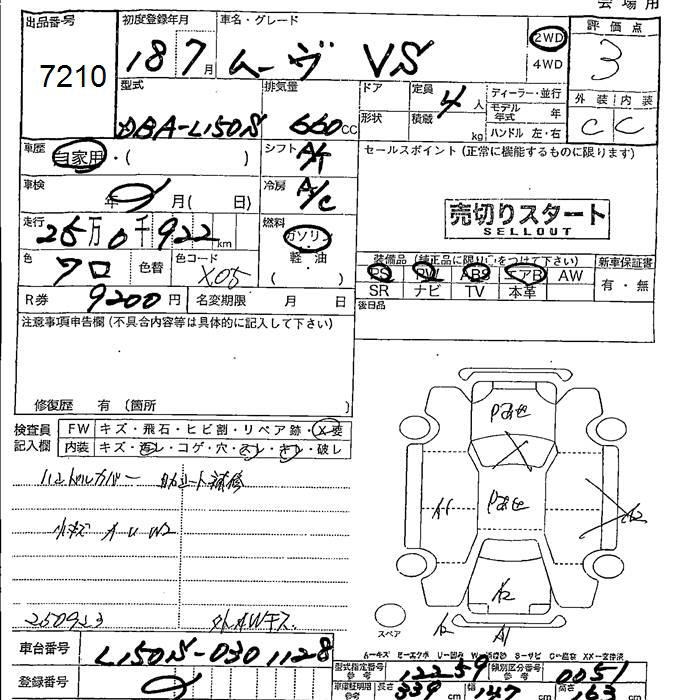 会場用
出品番号 初度登録年月 車名・グレード 評価点
7210 18 7月 ムーヴ VS 2WD 3
4WD
型式 排気量 ドア 定員 4人 ディーラー・並行 外装 内装
モデル年式 年
DBA-L150S 660cc 形状 積載 kg ハンドル 左・右 C C
車歴 自家用・( ) シフト A/T セールスポイント (正常に機能するものに限ります)
車検 年 月( 日) 冷房 A/C
売切りスタート
SELLOUT
走行 25万0千922km 燃料 ガソリン
軽・油
( )
色 クロ 色替 色コード X05
装備品 (純正品に限り○をつけて下さい) 新車保証書
PS PW ABS エアB AW 有・無
SR ナビ TV 本革
R券 9200円 名変期限 月 日
後日品
注意事項申告欄 (不具合内容等は具体的に記入して下さい)
修復歴 有 (箇所 )
検査員 FW キズ・飛石・ヒビ割・リペア跡・X要
記入欄 内装 キズ・汚レ・コゲ・穴・スレ・キレ・破レ
ハンドルカバー
小キズ A U W2
250923
Pあせ
Pあせ
A1
A2
A1
スペア
A−キズ U−凹み W−波凹
車台番号 L150S-0301128
登録番号
型式指定番号 参考 12259 類別区分番号 参考 0051
車庫証明用 参考 長さ 339 cm 幅 147 cm 高さ 163 cm